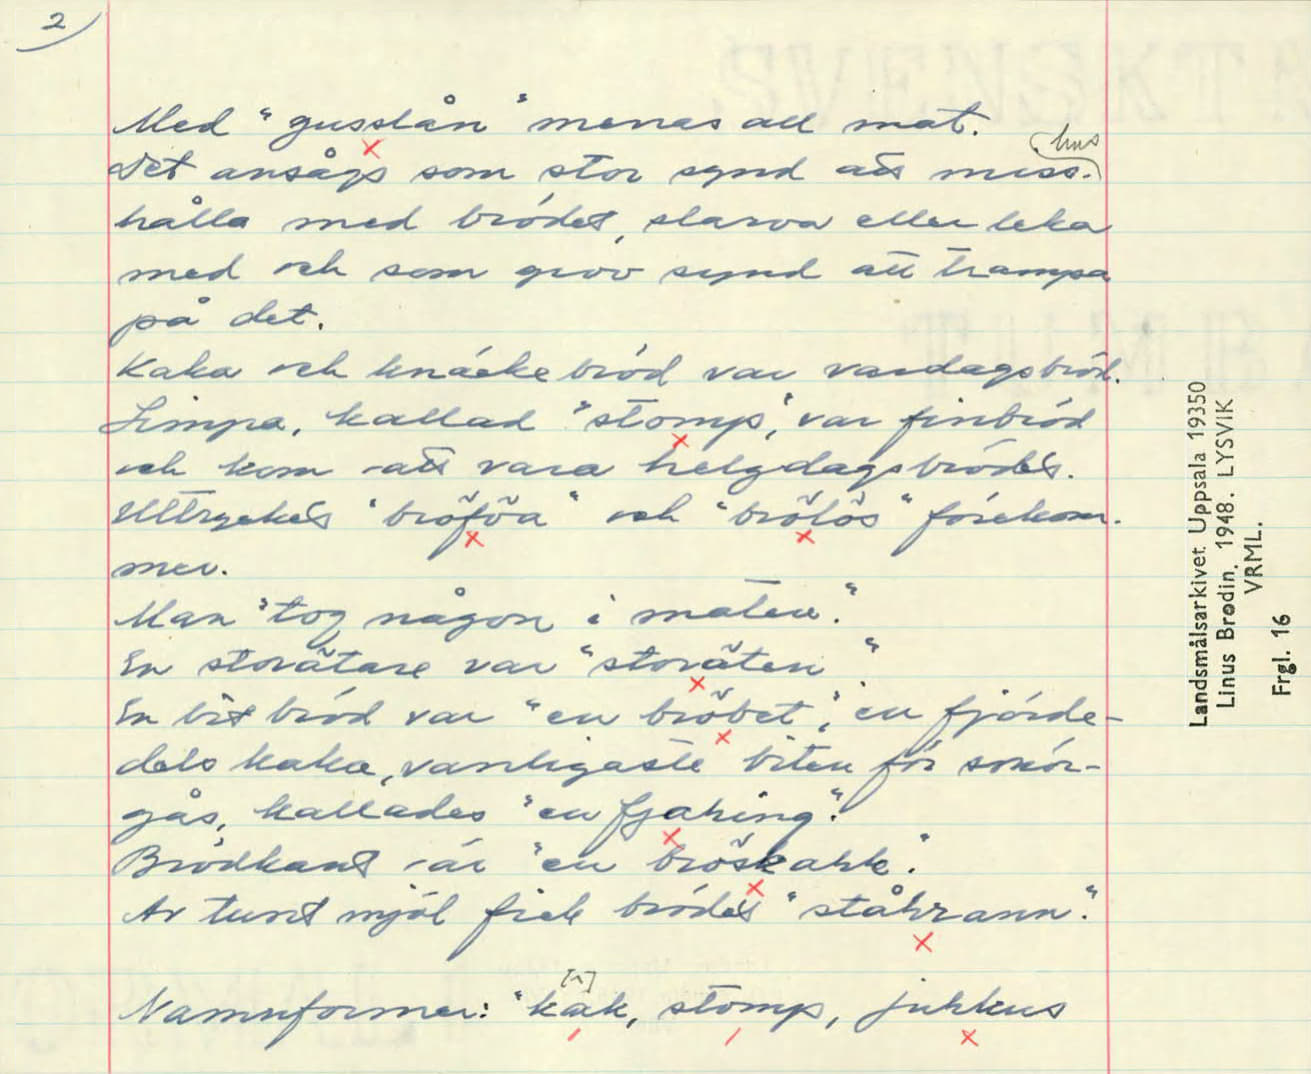 2
Med "gusslån" menas all mat.
Det ansågs som stor synd att miss-
hus
hålla med brödet, slarva eller leka
med och som grov synd att trampa
på det.
Kaka och knäckebröd var vardagsbröd.
Limpa, kallad "stomp", var finbröd
och kom att vara helgdagsbrödet.
Uttrycket "bröföa" och "brölös" förekom-
mer.
Man "tog någon i maten."
En storätare var "storäten"
En bit bröd var "en bröbet", en fjärde-
dels kaka, vanligaste biten för smör-
gås, kallades "en fjahring".
Brödkant är "en bröskahk".
Av tunt mjöl fick brödet "ståhrann."
Namnformer: "kak, stomp, juhkus
Landsmålsarkivet Uppsala 19350
Linus Brodin. 1948. LYSVIK
VRML.
Frgl. 16